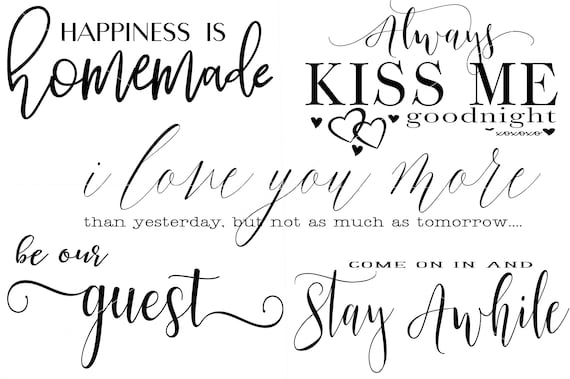 HAPPINESS IS
homemade
Always
KISS ME
goodnight
xoxoxo
i love you more
than yesterday, but not as much as tomorrow....
be our
guest
COME ON IN AND
Stay Awhile